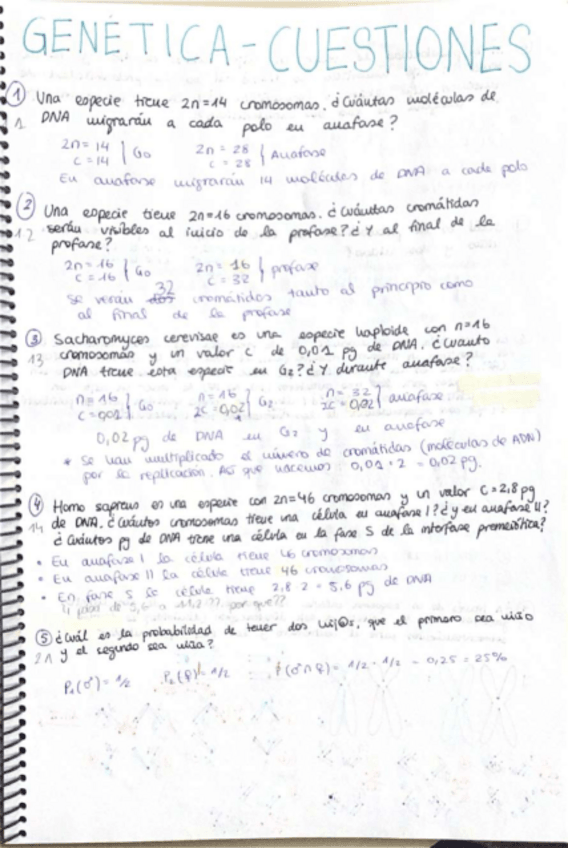 GENÉTICA - CUESTIONES
① Una especie tiene 2n=14 cromosomas. ¿Cuántas moléculas de
DNA migrarán a cada polo en anafase?
2n = 14 2n = 28
C = 14 } G0 C = 28 } Anafase
En anafase migrarán 14 moléculas de DNA a cada polo
② Una especie tiene 2n=16 cromosomas. ¿Cuántas cromátidas
12 serán visibles al inicio de la profase? ¿Y al final de la
profase?
2n = 16 2n = 16
C = 16 } G0 C = 32 } profase
Se verán 32 cromátidas tanto al principio como
al final de la profase
③ Sacharomyces cerevisae es una especie haploide con n=16
13 cromosomas y un valor C de 0,01 pg de DNA. ¿Cuánto
DNA tiene esta especie en G2? ¿Y durante anafase?
n = 16 n = 16 n = 32
C = 0,01 } G0 2C = 0,02 } G2 2C = 0,02 } anafase
0,02 pg de DNA en G2 y en anafase
* Se han multiplicado el número de cromátidas (moléculas de ADN)
por la replicación. Así que hacemos 0,01 · 2 = 0,02 pg.
④ Homo sapiens es una especie con 2n=46 cromosomas y un valor C=2,8 pg
14 de DNA. ¿Cuántos cromosomas tiene una célula en anafase I? ¿y en anafase II?
¿Cuántos pg de DNA tiene una célula en la fase S de la interfase premeiótica?
• En anafase I la célula tiene 46 cromosomas
• En anafase II la célula tiene 46 cromosomas
• En fase S la célula tiene 2,8 · 2 = 5,6 pg de DNA
de 5,6 a 11,2?? por qué??
⑤ ¿Cuál es la probabilidad de tener dos hij@s, que el primero sea niño
21 y el segundo sea niña?
P₁(♂) = 1/2 P₂(♀) = 1/2 P(♂∩♀) = 1/2 · 1/2 = 0,25 = 25%